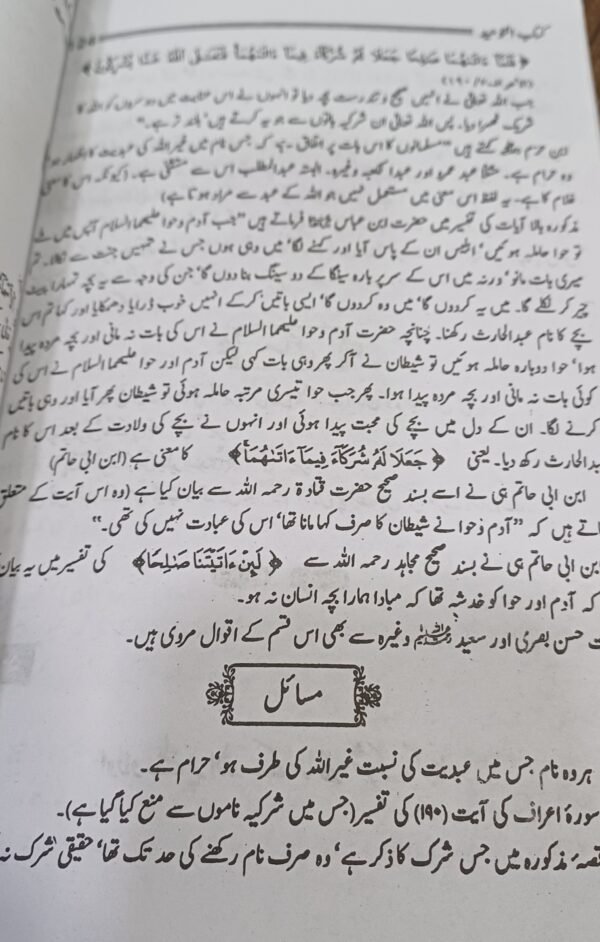 کتاب التوحید
﴿ فَلَمَّآ ءَاتَىٰهُمَا صَٰلِحًا جَعَلَا لَهُۥ شُرَكَآءَ فِيمَآ ءَاتَىٰهُمَا فَتَعَٰلَى ٱللَّهُ عَمَّا يُشْرِكُونَ ﴾
جب اللہ تعالیٰ نے انہیں صحیح و تندرست بچہ دیا تو انہوں نے اس عنایت میں دوسروں کو اللہ کا
شریک ٹھہرا دیا۔ پس اللہ تعالیٰ ان شرکیہ باتوں سے جو یہ کرتے ہیں' بلند تر ہے۔"
ابن حزم کہتے ہیں "مسلمانوں کا اس بات پر اتفاق ہے کہ جس نام میں غیر اللہ کی عبدیت کا اظہار ہو
وہ حرام ہے۔ مثلاً عبد عمرو اور عبد الکعبہ وغیرہ۔ البتہ عبدالمطلب اس سے مستثنیٰ ہے۔ (کیونکہ اس کا معنی
غلام کا ہے۔ یہ لفظ اس معنی میں مستعمل نہیں جو اللہ کے عبد سے مراد ہوتا ہے)
مذکورہ بالا آیات کی تفسیر میں حضرت ابن عباس فرماتے ہیں "جب آدم و حوا علیھما السلام آپس میں ملے
تو حوا حاملہ ہوئیں' ابلیس ان کے پاس آیا اور کہنے لگا' میں وہی ہوں جس نے تمہیں جنت سے نکالا۔ تم
میری بات مانو' ورنہ میں اس کے سر پر بارہ سینگا کے دو سینگ بنا دوں گا' جن کی وجہ سے یہ بچہ تمہارا پیٹ
چیر کر نکلے گا۔ میں یہ کر دوں گا' میں وہ کر دوں گا' ایسی باتیں کر کے انہیں خوب ڈرایا دھمکایا اور کہا تم اس
بچے کا نام عبدالحارث رکھنا۔ چنانچہ حضرت آدم و حوا علیھما السلام نے اس کی بات نہ مانی اور بچہ مردہ پیدا
ہوا' حوا دوبارہ حاملہ ہوئیں تو شیطان نے آ کر پھر وہی بات کہی لیکن آدم اور حوا علیھما السلام نے اس کی
کوئی بات نہ مانی اور بچہ مردہ پیدا ہوا۔ پھر جب حوا تیسری مرتبہ حاملہ ہوئی تو شیطان پھر آیا اور وہی باتیں
کرنے لگا۔ ان کے دل میں بچے کی محبت پیدا ہوئی اور انہوں نے بچے کی ولادت کے بعد اس کا نام
عبدالحارث رکھ دیا۔ یعنی ﴿ جَعَلَا لَهُۥ شُرَكَآءَ فِيمَآ ءَاتَىٰهُمَا ﴾ کا معنی ہے (ابن ابی حاتم)
ابن ابی حاتم ہی نے اسے بسند صحیح حضرت قتادۃ رحمہ اللہ سے بیان کیا ہے (وہ اس آیت کے متعلق
ہیں کہ "آدم و حوا نے شیطان کا صرف کہا مانا تھا' اس کی عبادت نہیں کی تھی۔"
ابن ابی حاتم ہی نے بسند صحیح مجاہد رحمہ اللہ سے ﴿ لَئِنْ ءَاتَيْتَنَا صَٰلِحًا﴾ کی تفسیر میں یہ بیان
کہ آدم اور حوا کو خدشہ تھا کہ مبادا ہمارا بچہ انسان نہ ہو۔
حسن بصری اور سعید وغیرہ سے بھی اس قسم کے اقوال مروی ہیں۔
مسائل
ہر وہ نام جس میں عبدیت کی نسبت غیر اللہ کی طرف ہو' حرام ہے۔
سورۂ اعراف کی آیت (۱۹۰) کی تفسیر (جس میں شرکیہ ناموں سے منع کیا گیا ہے)۔
قصہ مذکورہ میں جس شرک کا ذکر ہے' وہ صرف نام رکھنے کی حد تک تھا' حقیقی شرک نہ